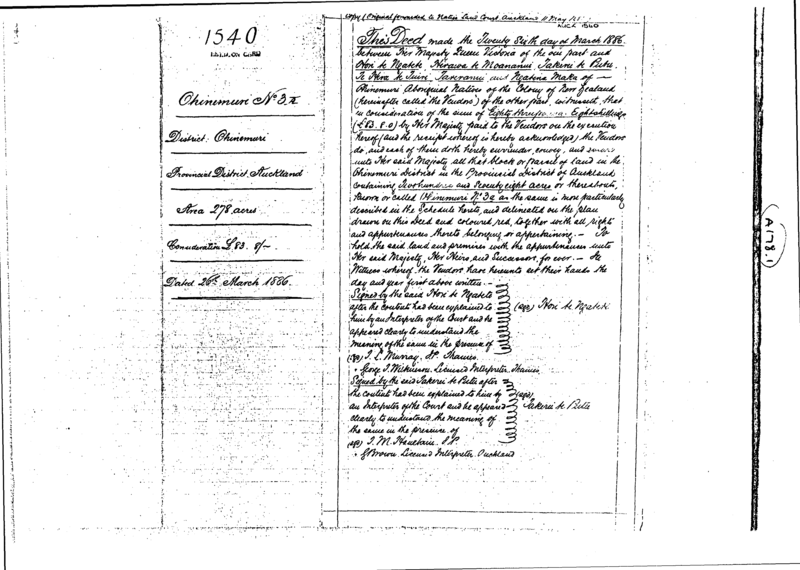 1540
Ohinemuri No 3
District: Ohinemuri
Provincial District, Auckland
Area 278 acres
Consideration £83. 8/-
Dated 26th March 1886.
Copy (Original forwarded to Native Land Court Auckland 11 May
This Deed made the Twenty Sixth day of March 1886
between Her Majesty Queen Victoria of the one part and
Hori te Ngatete Hirawa te Moananui Takerei te Putu
Te Hira te Tuiri, and Ngatina Maka of —
Ohinemuri Aboriginal Natives of the Colony of New Zealand
(hereinafter called the Vendors) of the other part, witnesseth, that
in consideration of the sum of Eighty three pounds Eight shillings
(£83.8.0) by Her Majesty paid to the Vendors on the execution
hereof (and the receipt whereof is hereby acknowledged) the Vendors
do, and each of them doth hereby surrender, convey, and
unto Her said Majesty all that block or parcel of land in the
Ohinemuri District in the Provincial District of Auckland
containing Two hundred and seventy eight acres or thereabouts,
known or called Ohinemuri No. 3 as the same is more particularly
described in the Schedule hereto, and delineated on the plan
drawn on this Deed and coloured red, together with all rights
and appurtenances thereto belonging or appertaining. — To
hold the said land and premises with the appurtenances unto
Her said Majesty, Her Heirs, and Successors, for ever. — In
Witness whereof, the Vendors have hereunto set their hands the
day and year first above written. —
Signed by the said Hori te Ngatete
after the contents had been explained to
him by an Interpreter of the Court and he
appeared clearly to understand the
meaning of the same in the presence of
(sgd) Hori te Ngatete
Murray, Thames.
" George T. Wilkinson. Licensed Interpreter, Thames
Signed by the said Takerei te Putu after
the contents had been explained to him by
an Interpreter of the Court and he appeared
clearly to understand the meaning of
the same in the presence of
(sgd)
Takerei te Putu
(sgd) T. M. Haultain. J.P.
" G Brown. Licensed Interpreter. Auckland
(A178.1)